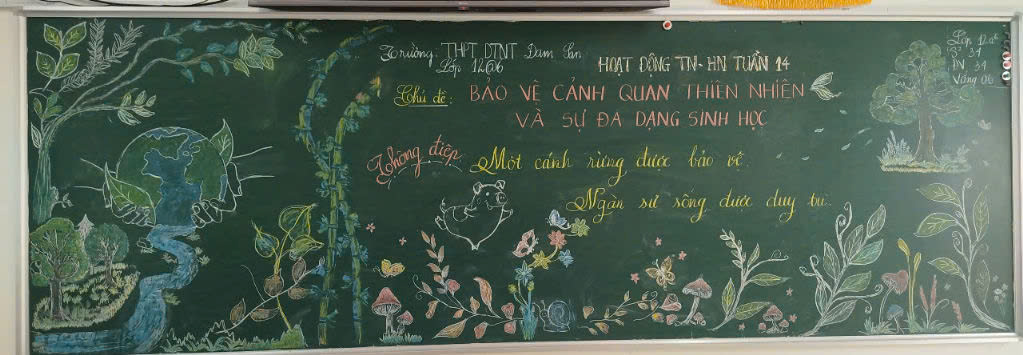 Trường: THPT DTNT Đam San
Lớp 12a6
HOẠT ĐỘNG TN - HN TUẦN 14
Chủ đề: BẢO VỆ CẢNH QUAN THIÊN NHIÊN
VÀ SỰ ĐA DẠNG SINH HỌC
Thông điệp Một cánh rừng được bảo vệ.
Ngàn sự sống được duy trì.
Lớp 12a6
Sĩ 34
34
Vắng 0